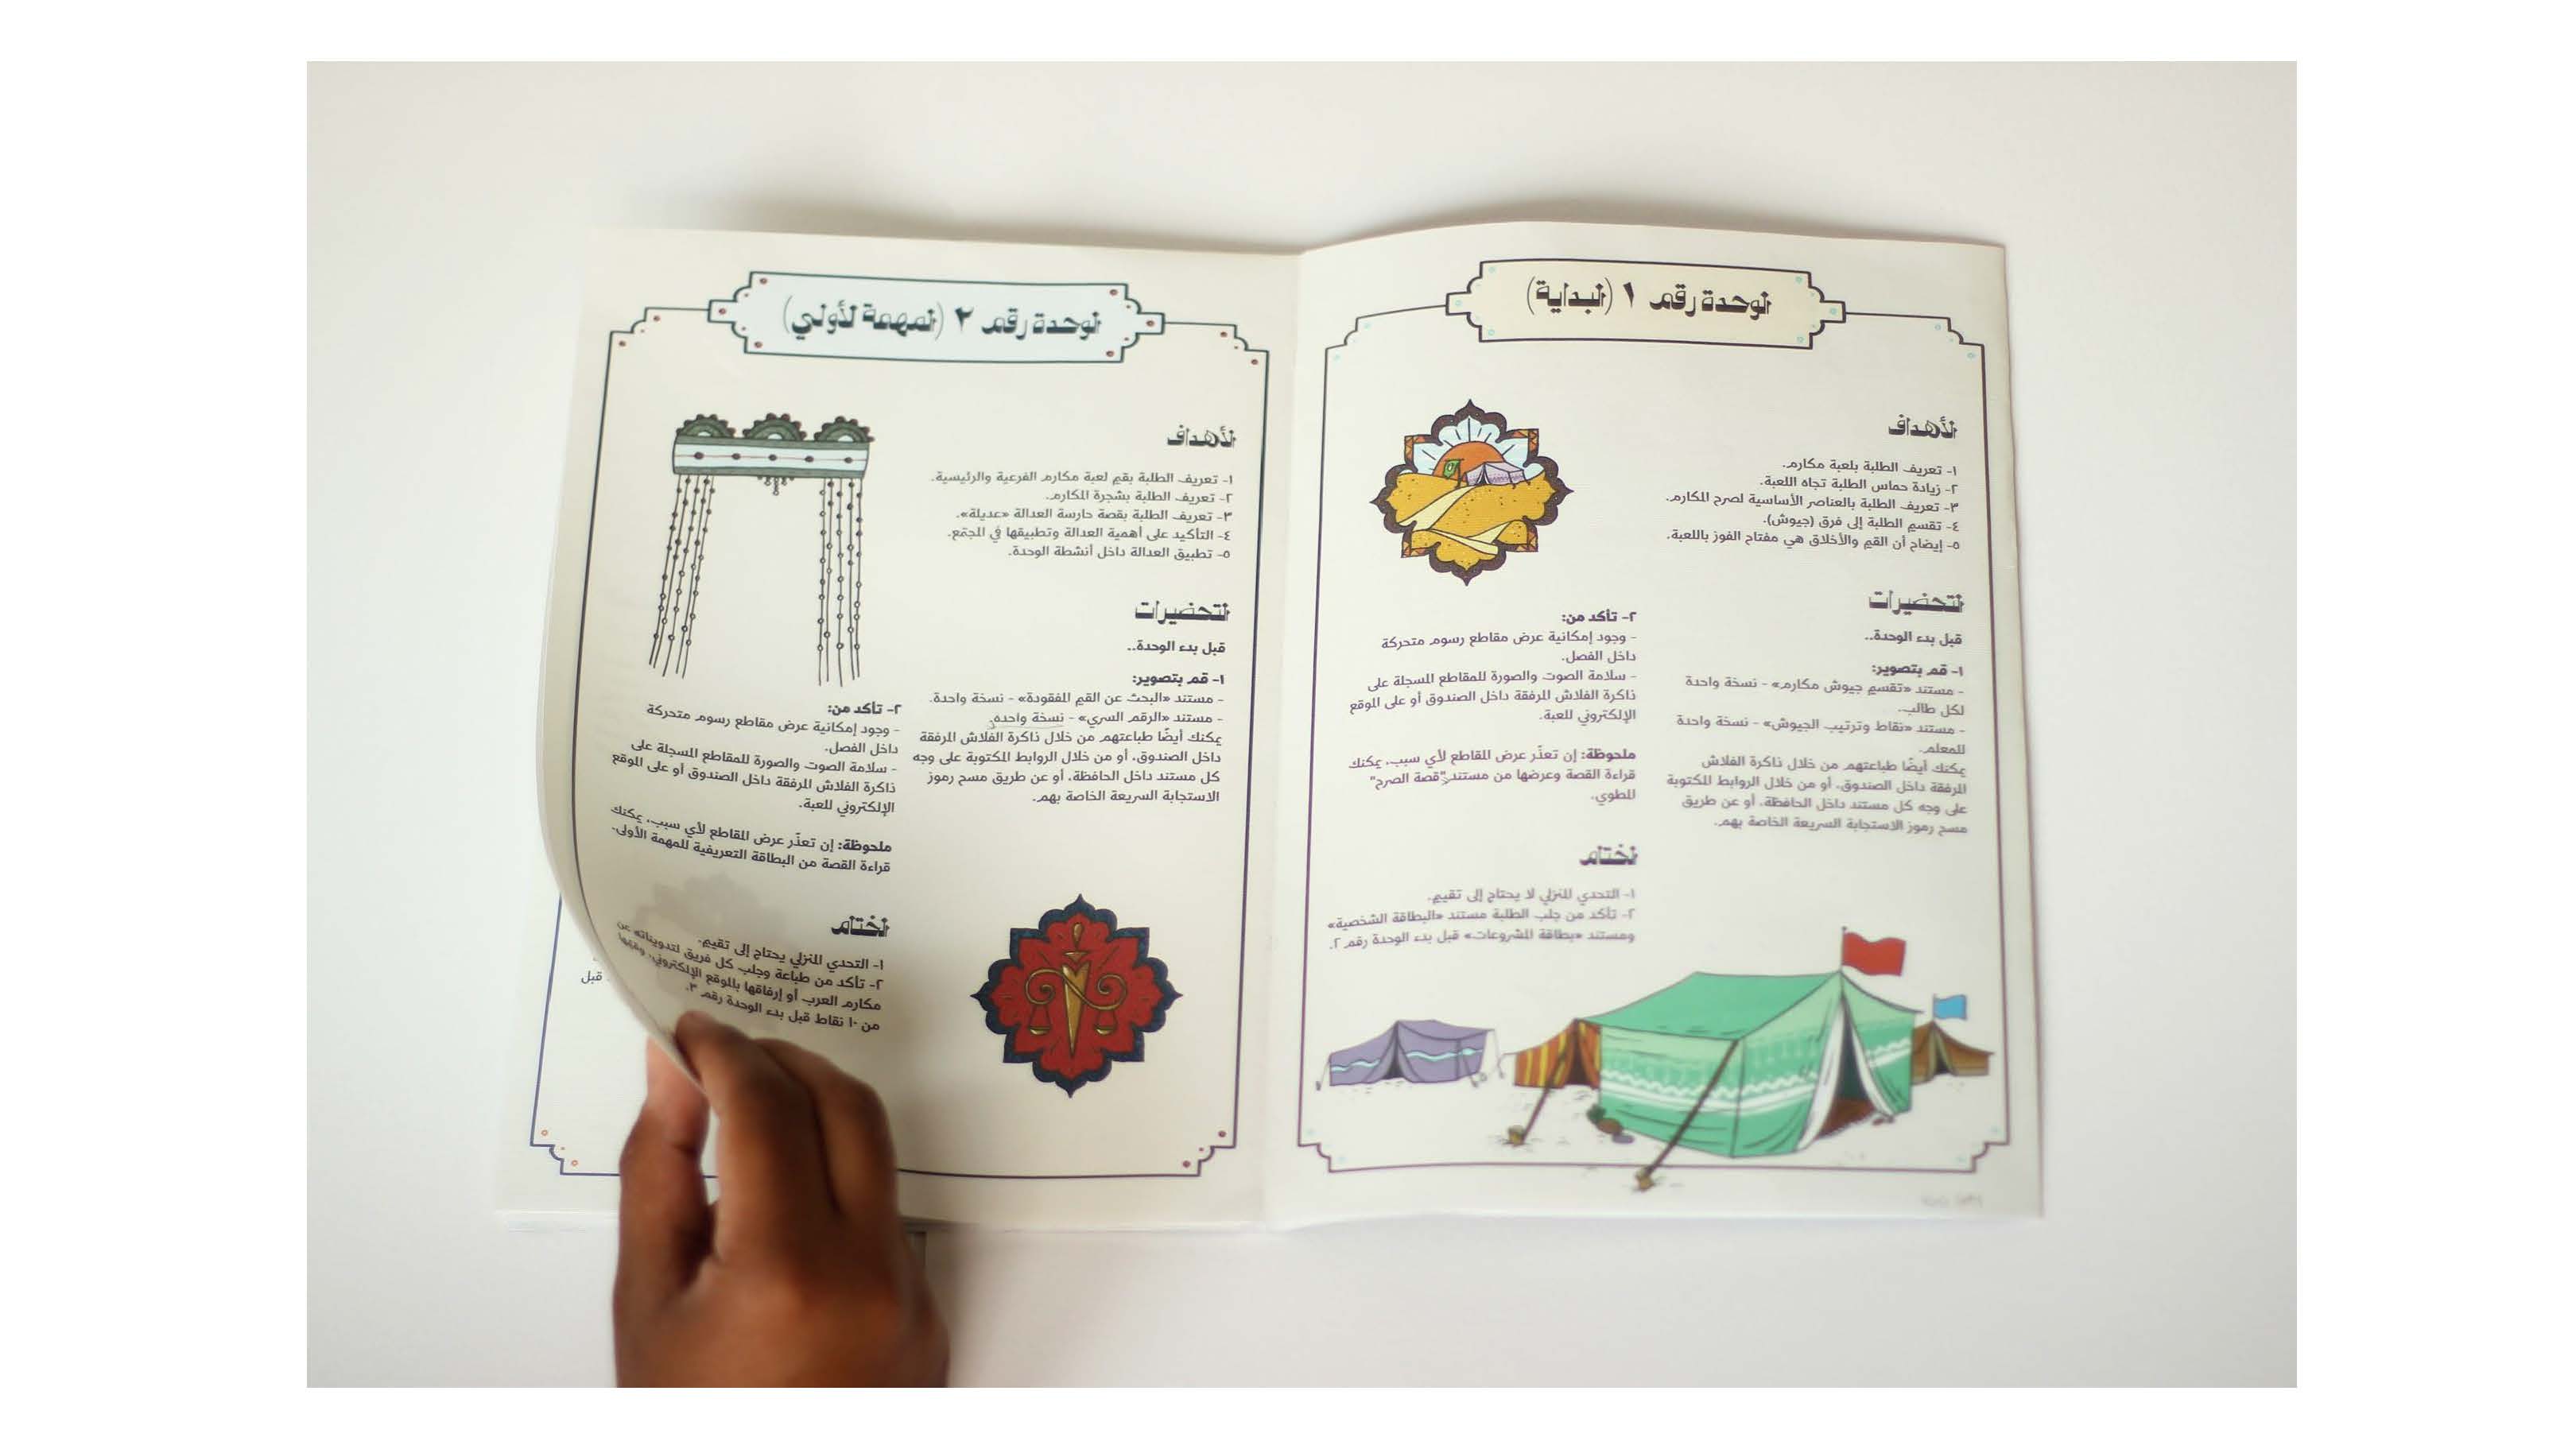 الوحدة رقم ١ (البداية)
الأهداف
١- تعريف الطلبة بلعبة مكارم.
٢- زيادة حماس الطلبة تجاه اللعبة.
٣- تعريف الطلبة بالعناصر الأساسية لصرح المكارم.
٤- تقسيم الطلبة إلى فرق (جيوش).
٥- إيضاح أن القيم والأخلاق هي مفتاح الفوز باللعبة.
التحضيرات
قبل بدء الوحدة..
١- قم بتصوير:
- مستند «تقسيم جيوش مكارم» - نسخة واحدة
لكل طالب.
- مستند «نقاط وترتيب الجيوش» - نسخة واحدة
للمعلم.
يمكنك أيضًا طباعتهم من خلال ذاكرة الفلاش
المرفقة داخل الصندوق، أو من خلال الروابط المكتوبة
على وجه كل مستند داخل الحافظة، أو عن طريق
مسح رموز الاستجابة السريعة الخاصة بهم.
٢- تأكد من:
- وجود إمكانية عرض مقاطع رسوم متحركة
داخل الفصل.
- سلامة الصوت والصورة للمقاطع المسجلة على
ذاكرة الفلاش المرفقة داخل الصندوق أو على الموقع
الإلكتروني للعبة.
ملحوظة: إن تعذّر عرض المقاطع لأي سبب، يمكنك
قراءة القصة وعرضها من مستند "قصة الصرح"
المطوي.
الختام
١- التحدي المنزلي لا يحتاج إلى تقييم.
٢- تأكد من جلب الطلبة مستند «البطاقة الشخصية»
ومستند «بطاقة المشروعات» قبل بدء الوحدة رقم ٢.
الوحدة رقم ٢ (المهمة الأولى)
الأهداف
١- تعريف الطلبة بقيم لعبة مكارم الفرعية والرئيسية.
٢- تعريف الطلبة بشجرة المكارم.
٣- تعريف الطلبة بقصة حارسة العدالة «عديلة».
٤- التأكيد على أهمية العدالة وتطبيقها في المجتمع.
٥- تطبيق العدالة داخل أنشطة الوحدة.
التحضيرات
قبل بدء الوحدة..
١- قم بتصوير:
- مستند «البحث عن القيم المفقودة» - نسخة واحدة.
- مستند «الرقم السري» - نسخة واحدة.
يمكنك أيضًا طباعتهم من خلال ذاكرة الفلاش المرفقة
داخل الصندوق، أو من خلال الروابط المكتوبة على وجه
كل مستند داخل الحافظة، أو عن طريق مسح رموز
الاستجابة السريعة الخاصة بهم.
٢- تأكد من:
- وجود إمكانية عرض مقاطع رسوم متحركة
داخل الفصل.
- سلامة الصوت والصورة للمقاطع المسجلة على
ذاكرة الفلاش المرفقة داخل الصندوق أو على الموقع
الإلكتروني للعبة.
ملحوظة: إن تعذّر عرض المقاطع لأي سبب، يمكنك
قراءة القصة من البطاقة التعريفية للمهمة الأولى.
الختام
١- التحدي المنزلي يحتاج إلى تقييم.
٢- تأكد من طباعة وجلب كل فريق لتدويناته عن
مكارم العرب أو إرفاقها بالموقع الإلكتروني، وقيّمها
من ١٠ نقاط قبل بدء الوحدة رقم ٣.
قبل